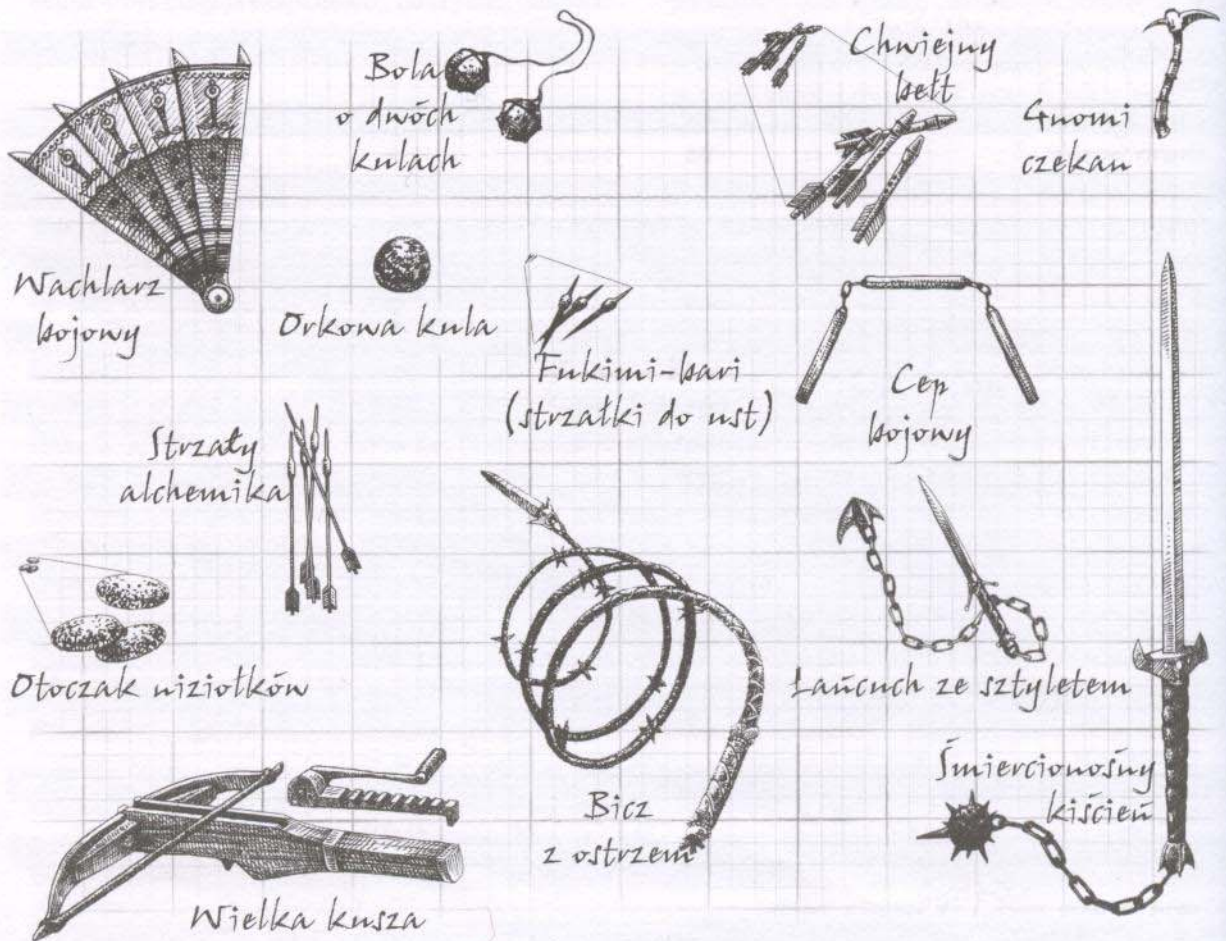 Bola
o dwóch
kulach
Chwiejny
bełt
Gnomi
czekan
Wachlarz
bojowy
Orkowa kula
Fukimi-bari
(strzałki do ust)
Cep
bojowy
Strzały
alchemika
Otoczak niziołków
Łańcuch ze sztyletem
Śmiercionośny
kiścień
Bicz
z ostrzem
Wielka kusza